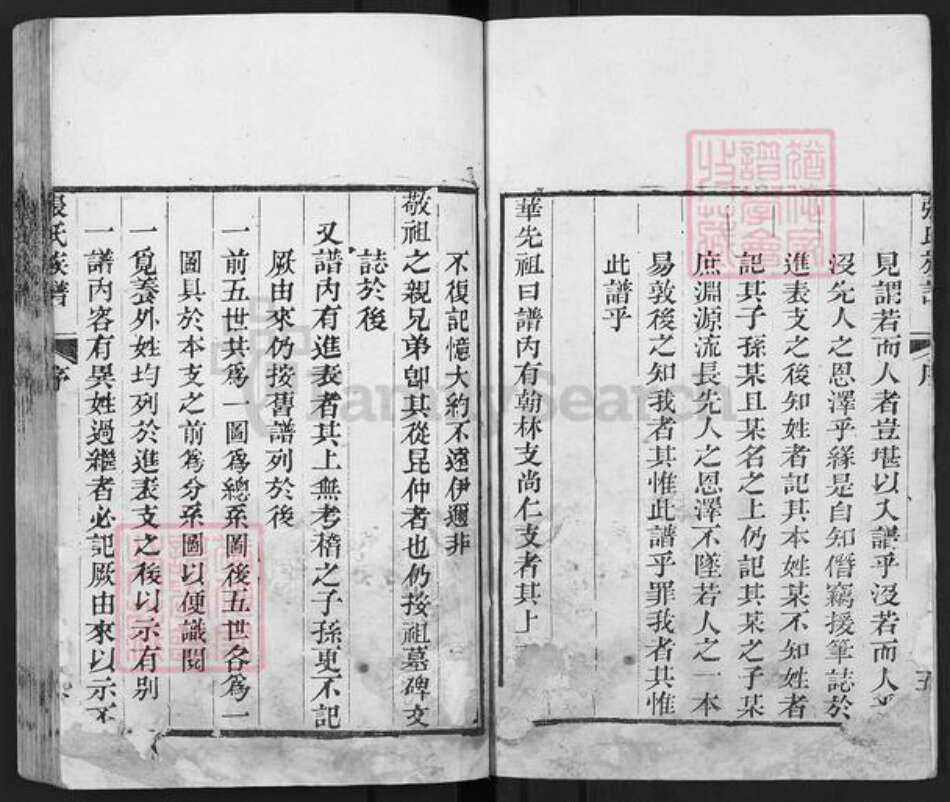 見謂若而人者豈堪以入譜乎沒若而人
沒先人之恩澤乎緣是自知僭竊援筆誌於
進表支之後知姓者記其本姓某不知姓者
記其子孫某且某名之上仍記其某之子某
庶淵源流長先人之恩澤不墜若人之一本
易敦後之知我者其惟此譜乎罪我者其惟
此譜乎
華先祖曰譜內有翰林支尚仁支者其上
不復記憶大約不遠伊邇非
敬祖之親兄弟卽其從昆仲者也仍按祖墓碑文
誌於後
又譜內有進表者其上無考稽之子孫更不記
厥由來仍按舊譜列於後
一前五世共爲一圖爲總系圖後五世各爲一
圖具於本支之前爲分系圖以便識閱
一覓養外姓均列於進表支之後以示有別
一譜內容有異姓過繼者必記厥由來以示不
張氏族譜
序
FamilySearch